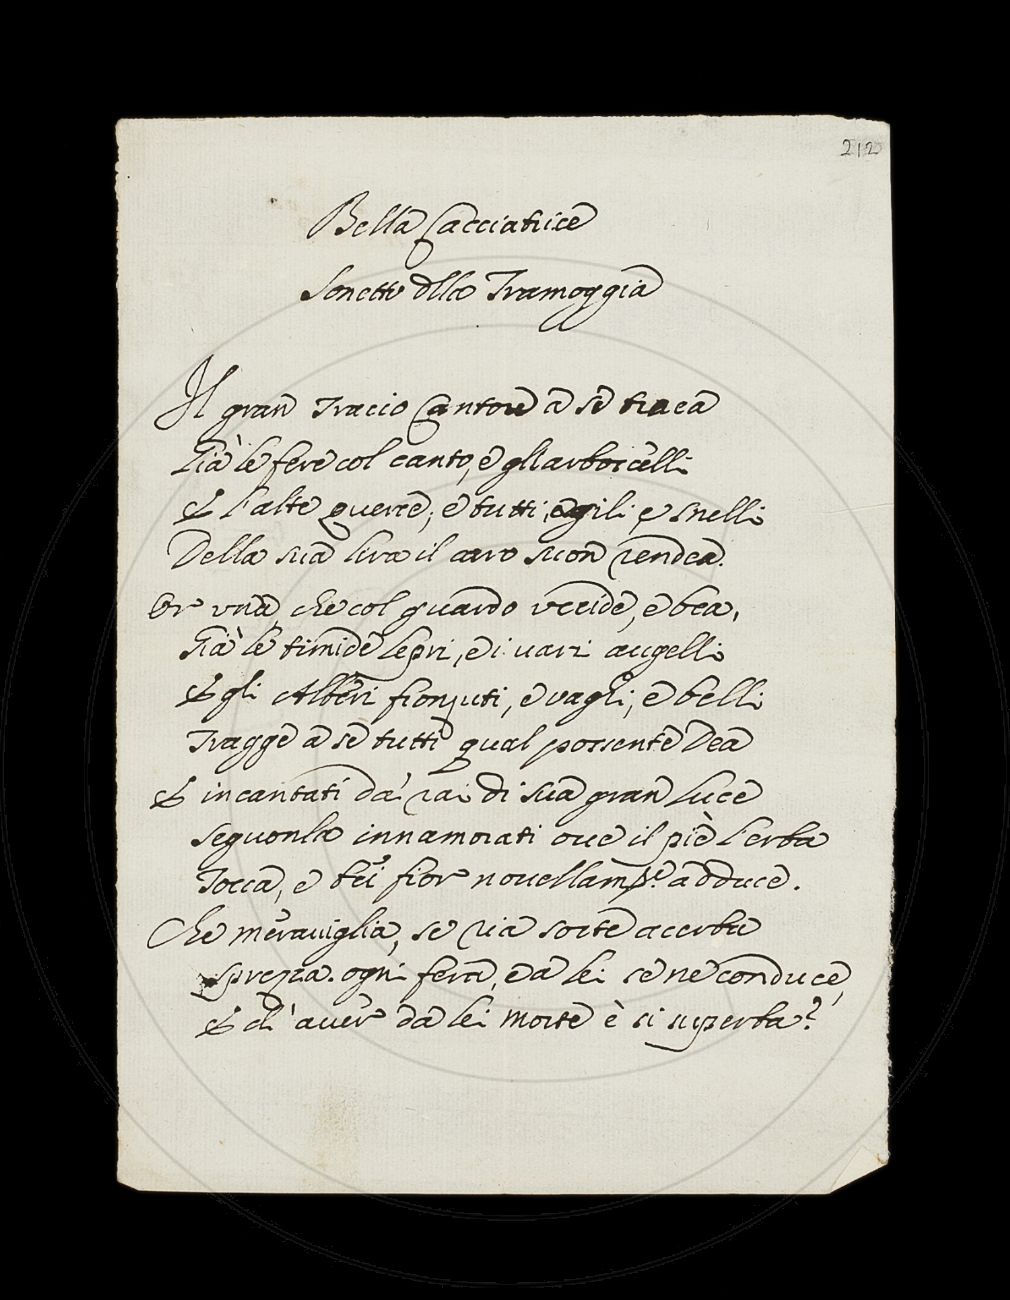 212
Bella Cacciatrice
Sonetto dllo Tramoggia
Il gran Tracio Cantore a se traea
Già le fere col canto, e gli arboscelli
E l'alte querce, e tutti agili e snelli
Della sua lira il caro suon rendea.
Or una, che col guardo uccide, e bea,
Già le timide lepri, e i vari augelli
E gli Alberi fronzuti, e vaghi, e belli
Tragge a se tutti qual possente Dea
E incantati da' rai di sua gran luce
Seguonla innamorati ove il piè l'erba
Tocca, e bei fior novellamte adduce.
Che meraviglia, se ria sorte acerba
Sprezza ogni fera, e a lei se ne conduce,
E d'aver da lei morte è si superba?